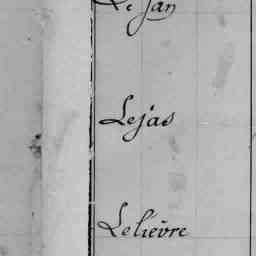 Le Jan
Lejas
Lelièvre